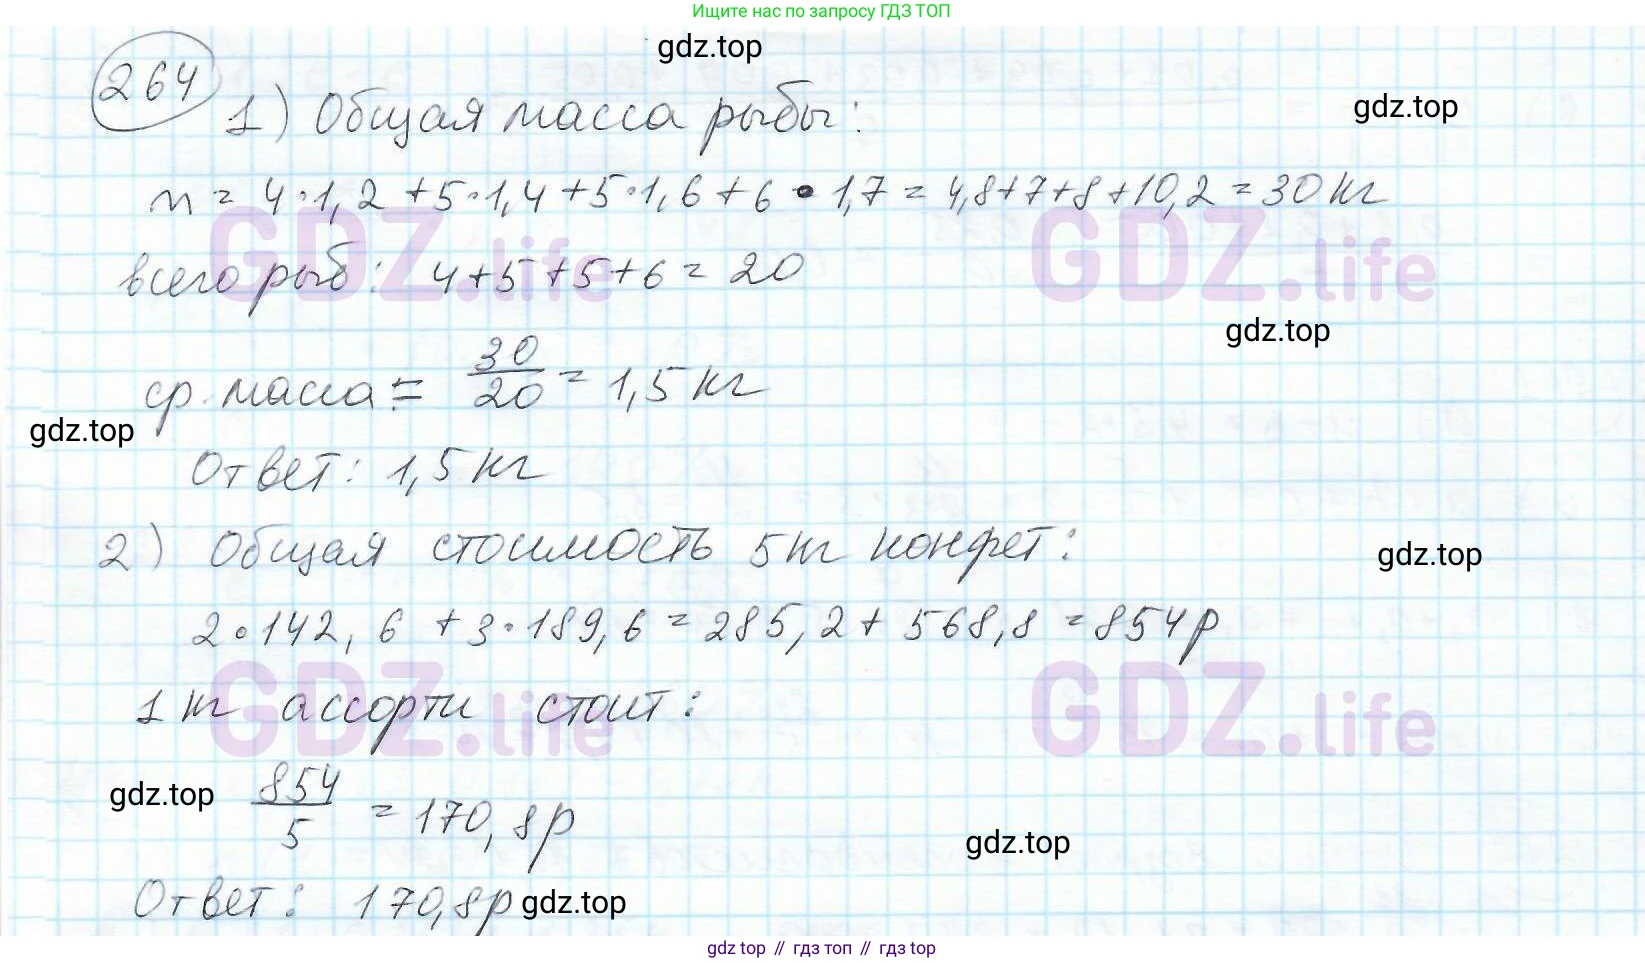 Ищите нас по запросу ГДЗ ТОП
gdz.top
264
1) Общая масса рыбы:
gdz.top
m = 4·1,2 + 5·1,4 + 5·1,6 + 6·1,7 = 4,8+7+8+10,2 = 30 кг
GDZ.life GDZ.life
всего рыб: 4+5+5+6 = 20
gdz.top
ср. масса = 30/20 = 1,5 кг
gdz.top
Ответ: 1,5 кг
2) Общая стоимость 5кг конфет:
gdz.top
2·142,6 + 3·189,6 = 285,2 + 568,8 = 854р
GDZ.life GDZ.life
1 кг ассорти стоит:
gdz.top
854/5 = 170,8р
gdz.top
Ответ: 170,8р
gdz.top
gdz top // гдз топ // гдз top